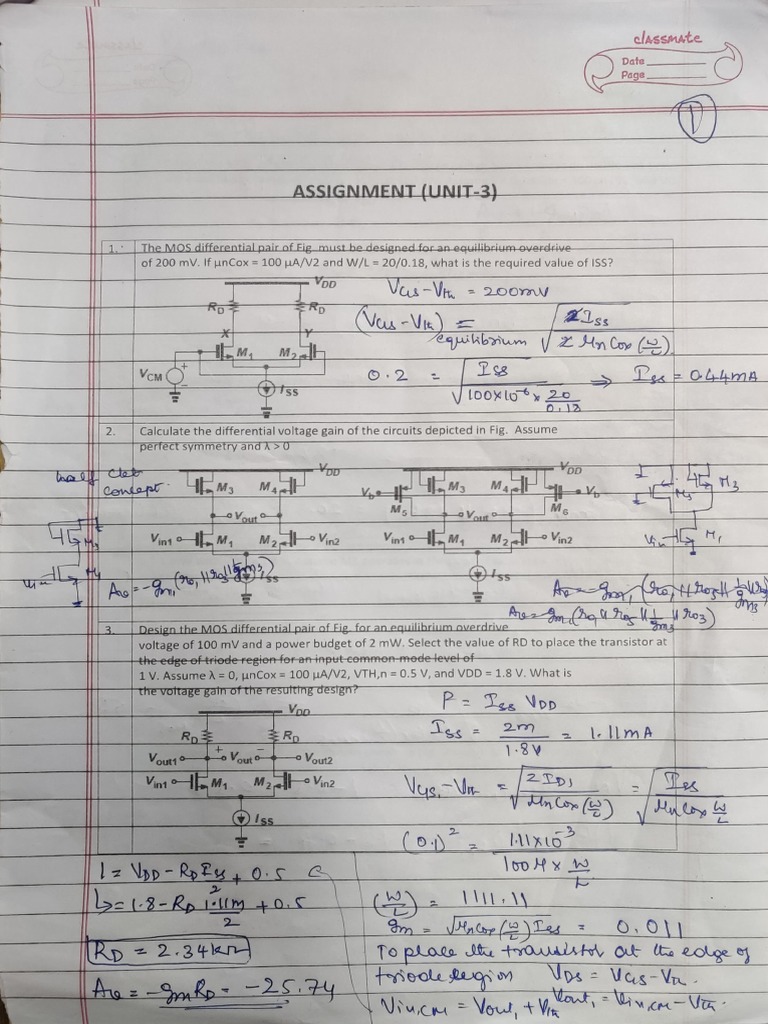 classmate
Date
Page
1
ASSIGNMENT (UNIT-3)
1. The MOS differential pair of Fig. must be designed for an equilibrium overdrive
of 200 mV. If μnCox = 100 μA/V2 and W/L = 20/0.18, what is the required value of ISS?
VDD
RD RD
X Y
M1 M2
VCM
ISS
VGS-Vth = 200mV
(VGS-Vth)equilibrium = √(2ISS / 2 μnCox (W/L))
0.2 = √(ISS / 100×10^-6 × 20/0.18) ⇒ ISS = 0.44mA
2. Calculate the differential voltage gain of the circuits depicted in Fig. Assume
perfect symmetry and λ > 0
half ckt
concept.
VDD
M3 M4
Vout
Vin1 M1 M2 Vin2
ISS
M3
Vin M1
Av = -gm1(ro1 || ro3 || 1/gm3)
VDD
Vb M3 M4 Vb
M5 M6
Vout
Vin1 M1 M2 Vin2
ISS
M5 M3
Vin M1
Av = -gm1 (ro1 || ro3 || 1/gm3 || ro
Av = -gm1(ro1 || ro5 || 1/gm3 || ro3)
3. Design the MOS differential pair of Fig. for an equilibrium overdrive
voltage of 100 mV and a power budget of 2 mW. Select the value of RD to place the transistor at
the edge of triode region for an input common-mode level of
1 V. Assume λ = 0, μnCox = 100 μA/V2, VTH,n = 0.5 V, and VDD = 1.8 V. What is
the voltage gain of the resulting design?
VDD
RD RD
Vout1 + Vout - Vout2
Vin1 M1 M2 Vin2
ISS
P = ISS VDD
ISS = 2m / 1.8V = 1.11mA
VGS1-Vth = √(2ID1 / μnCox(W/L)) = √(ISS / μnCox W/L)
(0.1)^2 = 1.11×10^-3 / 100μ × W/L
(W/L) = 1111.11
gm = √(μnCox(W/L)ISS) = 0.011
To place the transistor at the edge of
triode region VDS = VGS-Vth.
Vout1 = Vin,CM - Vth.
Vin,CM = Vout1 + Vth
1 = VDD - RD ISS/2 + 0.5
↳ = 1.8 - RD 1.11m/2 + 0.5
RD = 2.34kΩ
Av = -gmRD = -25.74